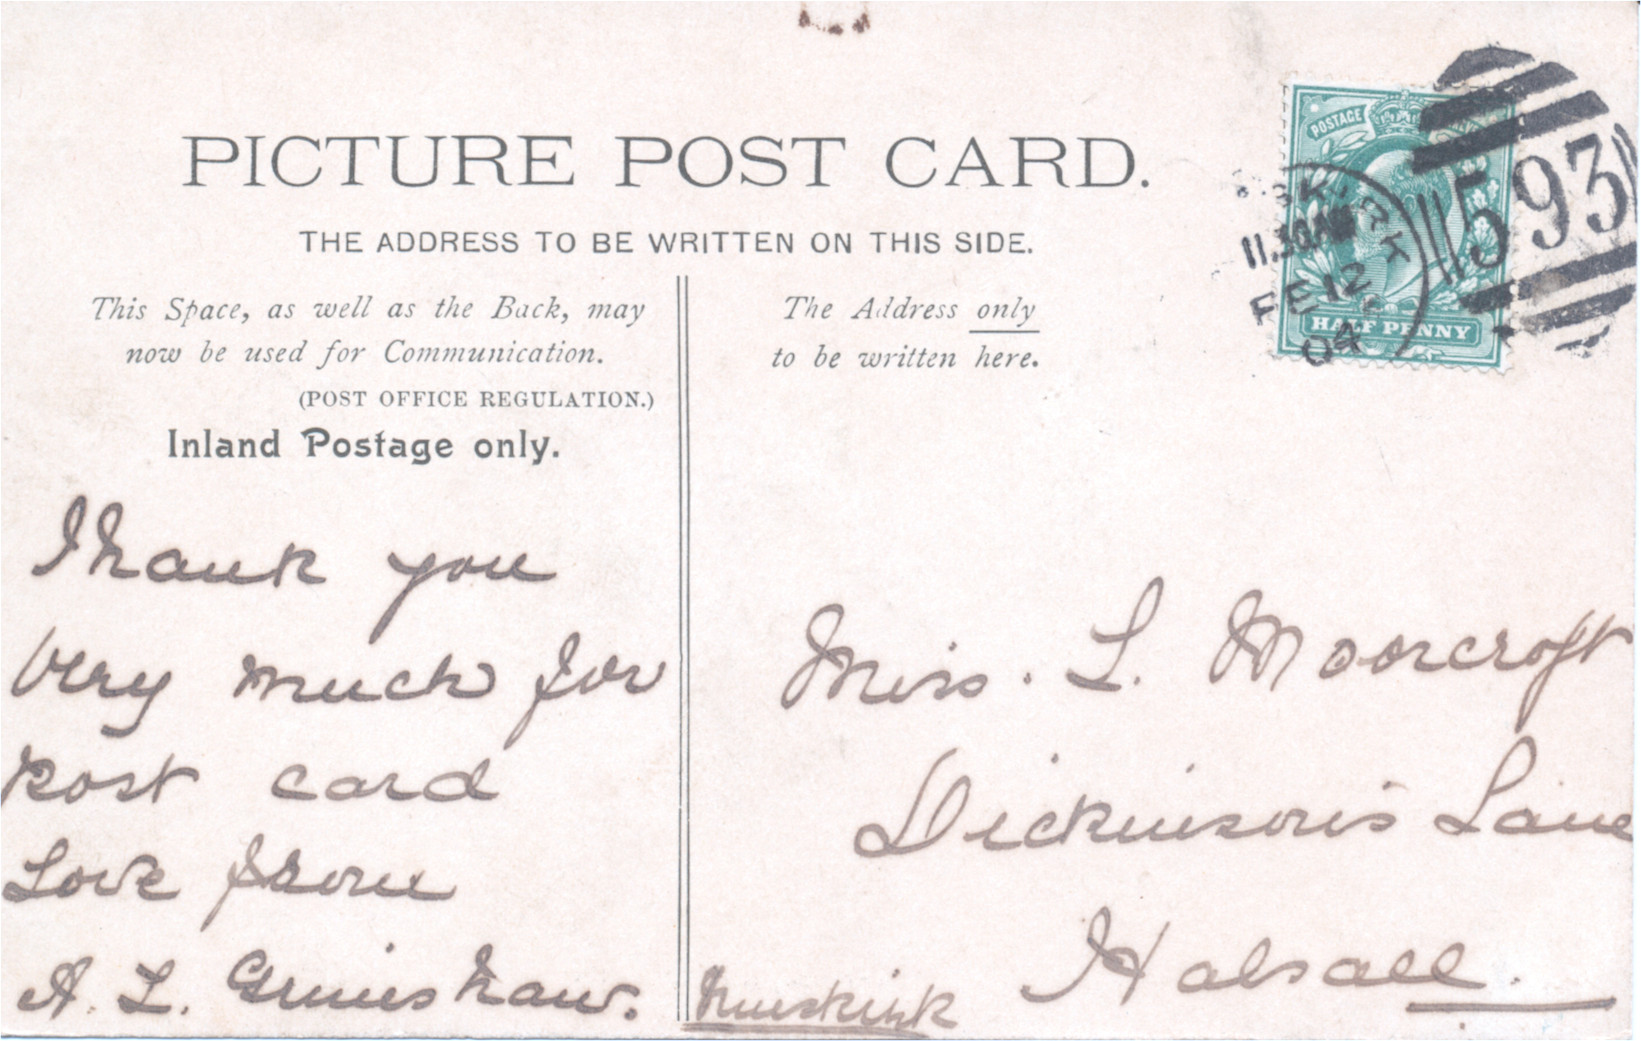 PICTURE POST CARD.
THE ADDRESS TO BE WRITTEN ON THIS SIDE.
This Space, as well as the Back, may
now be used for Communication.
(POST OFFICE REGULATION.)
Inland Postage only.
The Address only
to be written here.
POSTAGE
HALF PENNY
593
SKIRK
11.30AM
FE 12
04
Thank you
very much for
post card
Love from
A. L. Grimshaw.
Miss. L. Moorcroft
Dickinson's Lane
Halsall.
Ormskirk